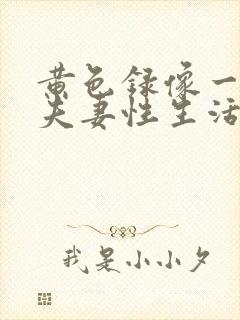 黄色录像一
夫妻性生活
我是小小夕